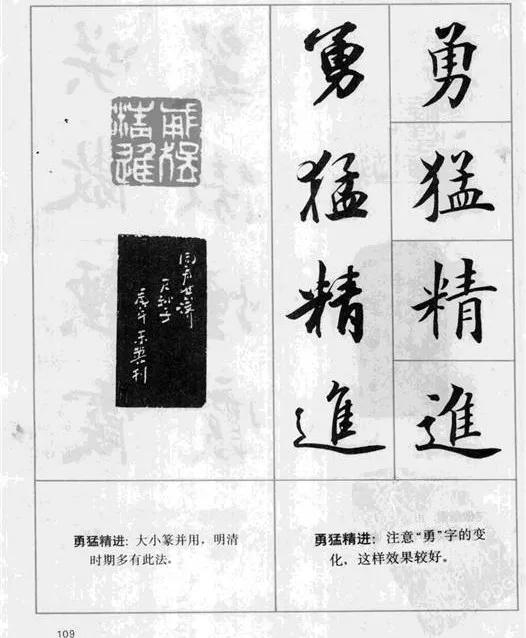 勇猛精進
勇猛精進
勇猛精进：大小篆并用，明清
时期多有此法。
勇猛精进：注意“勇”字的变
化，这样效果较好。
109